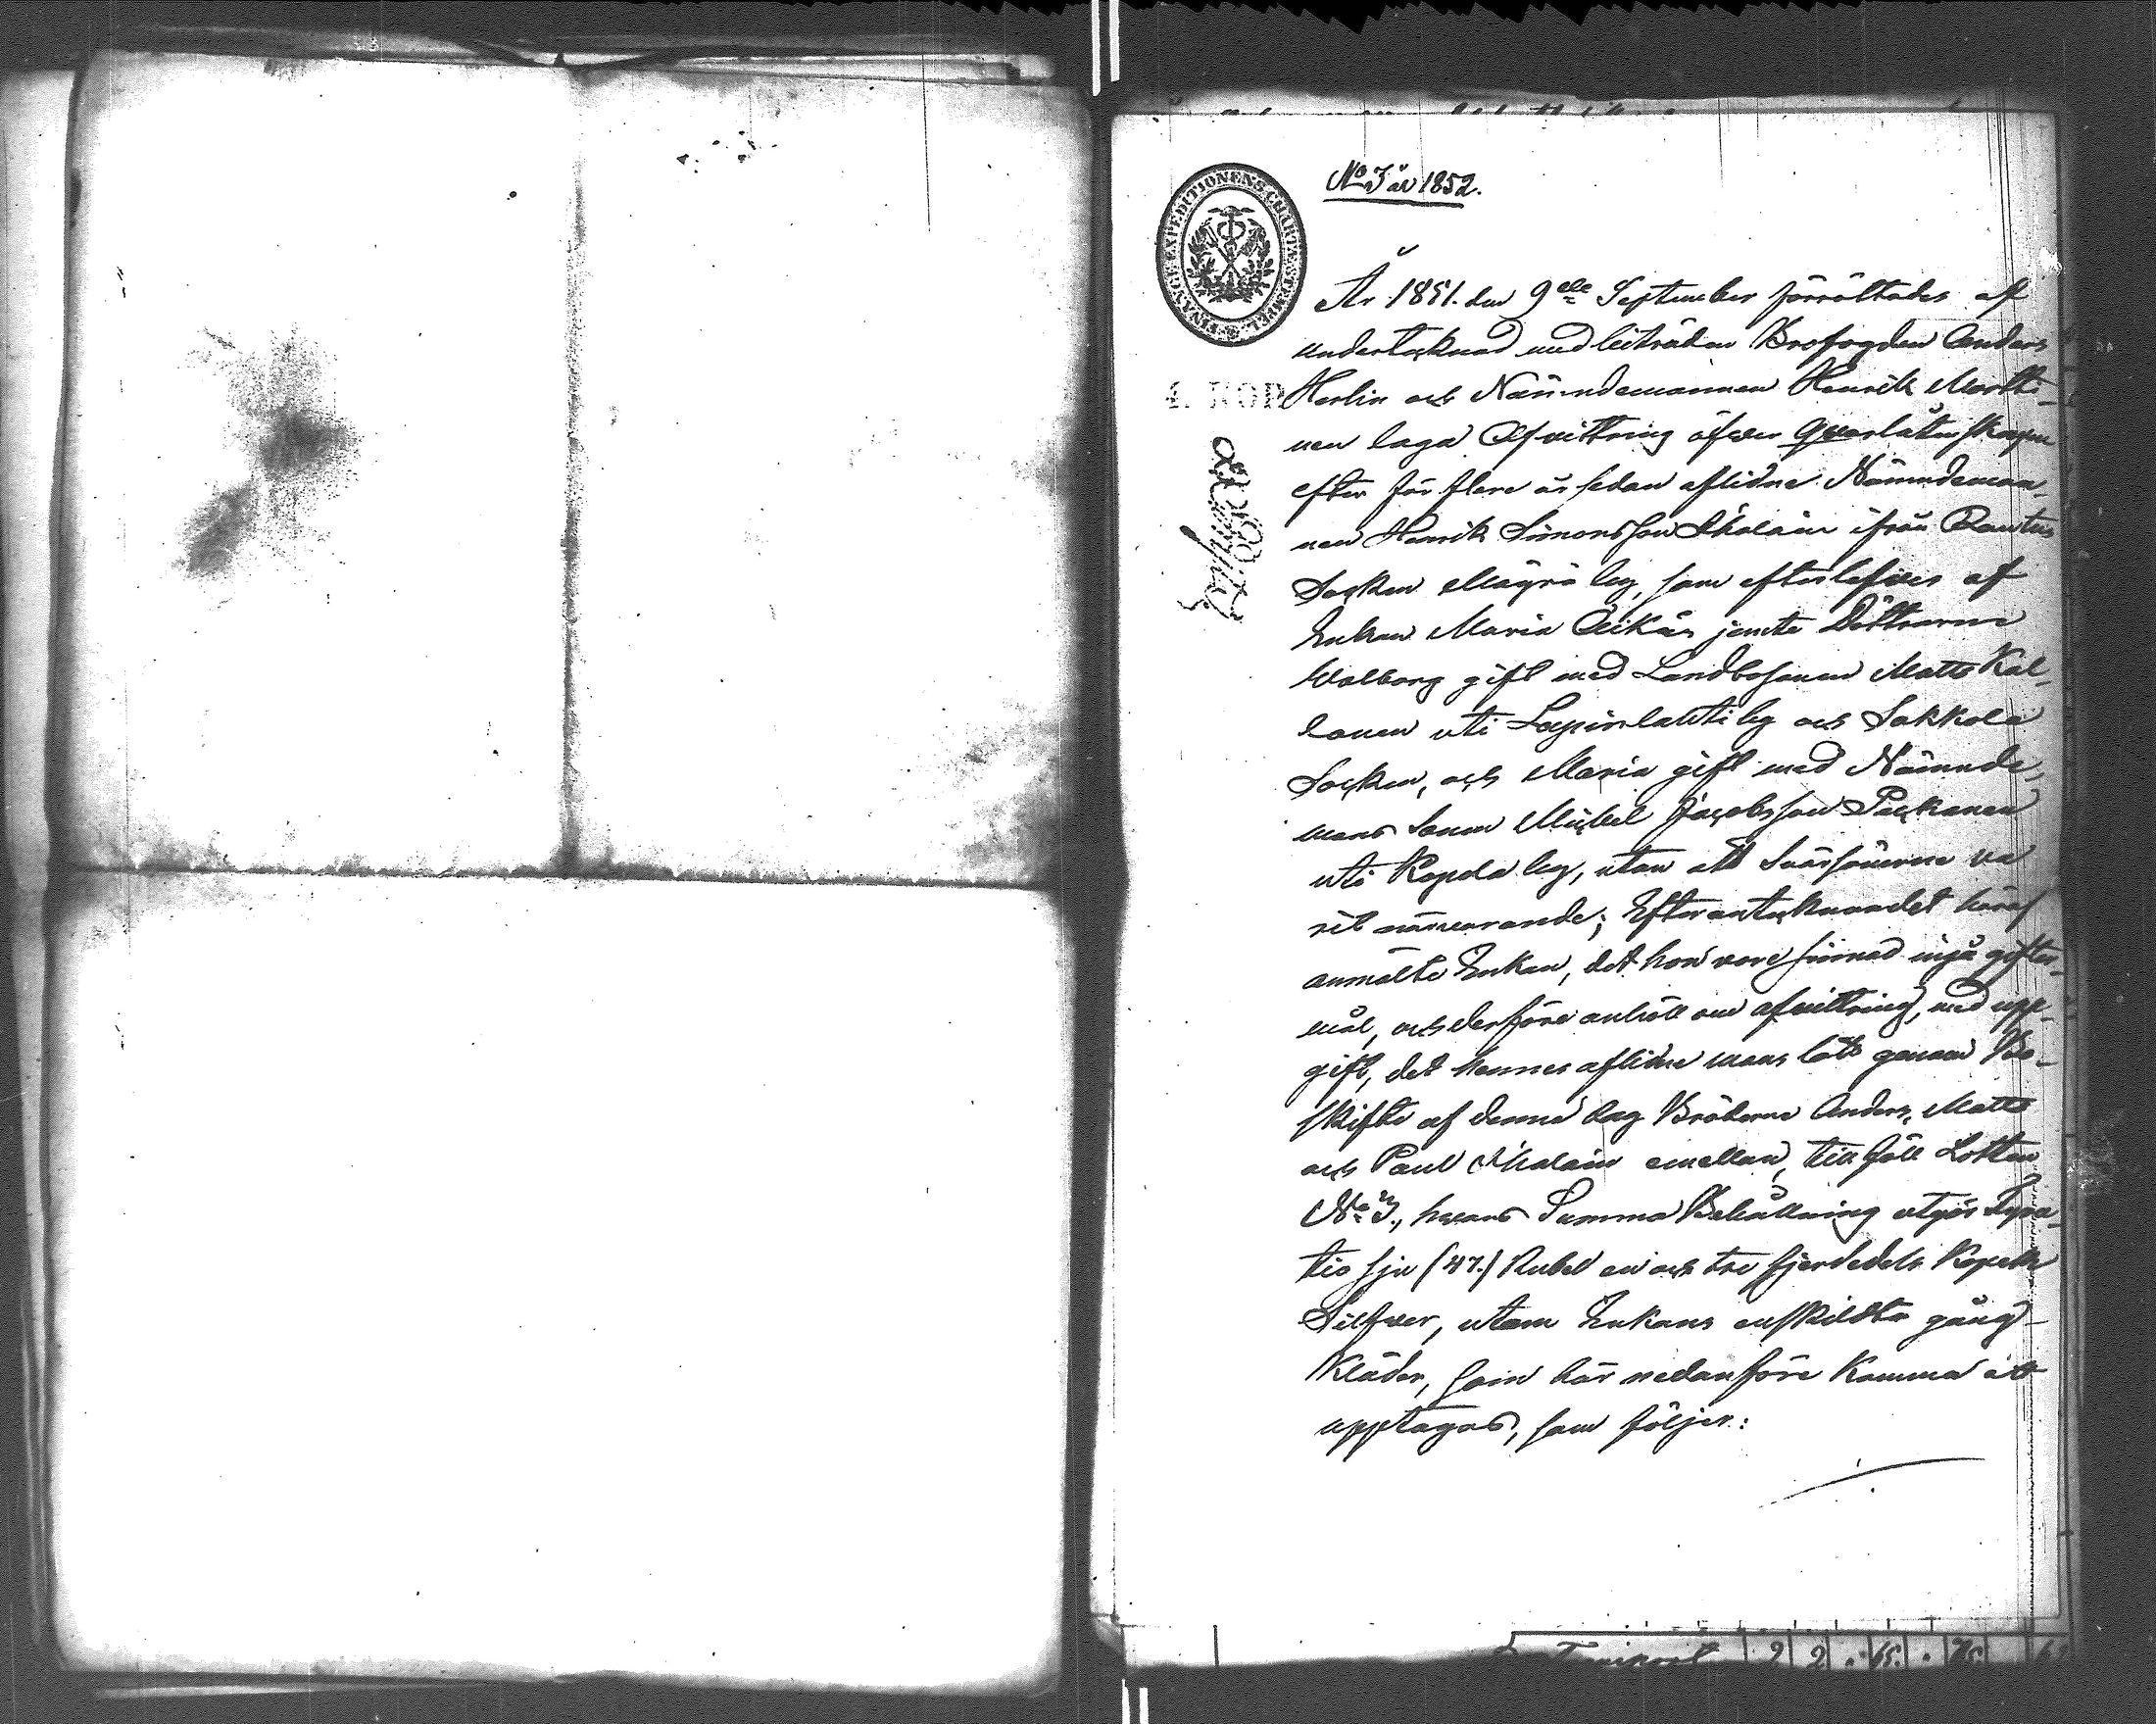 No 3 år 1852.
FINANCE EXPEDITIONENS CHARTÆ STEMPEL
År 1851. den 9de September förrättades af
undertecknad med biträden Brofogden Anders
4. KOP.
Herlin och Nämndemannen Henrik Martti-
nen laga Afvittring öfver Qvarlåtenskapen
efter för flere år sedan aflidne Nämndeman-
nen Henrik Simonsson Ihalain ifrån Rautus
Socken Mägrä by, som efterlefves af
Enkan Maria Äikäs jemte Döttrarne
Walborg gift med Landbosonen Matts Kal-
lonen uti Lapinlahti by och Sakkola
Socken, och Maria gift med Nämnde-
mans Sonen Michel Jacobsson Päckanen
uti Kopela by, utan att Svärsönerne va
rit närvarande; Efter antecknandet häraf
anmälte Enkan, det hon vore sinnad ingå gifter-
mål, och derföre anhöll om afvittring, med upp-
gift, det hennes aflidne mans lott genom Bo-
skifte af denna dag Bröderne Anders, Matts
och Paul Ihalain emellan, tillföll Lotten
No 3., hvars Summa Behållning utgör Fyra-
tio sju (47.) Rubel en och tre fjerdedels Kopek
Silfver, utom Enkans enskildta gång-
kläder, som här nedanföre komma att
upptagas, som följer:
Transport 2 2